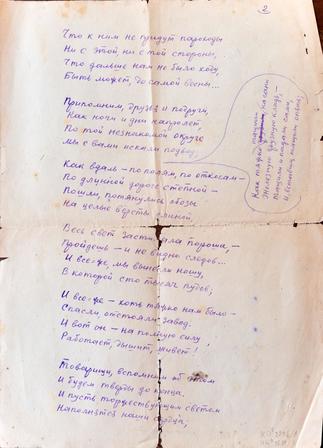 2
Что к ним не придут пароходы
Ни с этой, ни с той стороны,
Что дальше нам не было ходу,
Быть может, до самой весны...
Припомним, друзья и подруги,
Как ночи и дни напролёт,
По той незнакомой округе
Мы с вами искали подвод;
Как тяжко
Железную грузную кладь, —
Как вдаль — по полям, по откосам —
По длинной дороге степной —
Пошли, потянулись обозы
На целые вёрсты длиной.
Весь свет застилала пороша, —
Пройдёшь — и не видно следов...
И всё-же, мы вынесли ношу,
В которой сто тысяч пудов;
И всё-же — хоть тяжко нам было —
Спасли, отстояли завод.
И вот он — на полную силу
Работает, дышит, живёт!
Товарищи, вспомним об этом
И будем тверды до конца.
И пусть торжествующим светом
Наполнятся наши сердца;